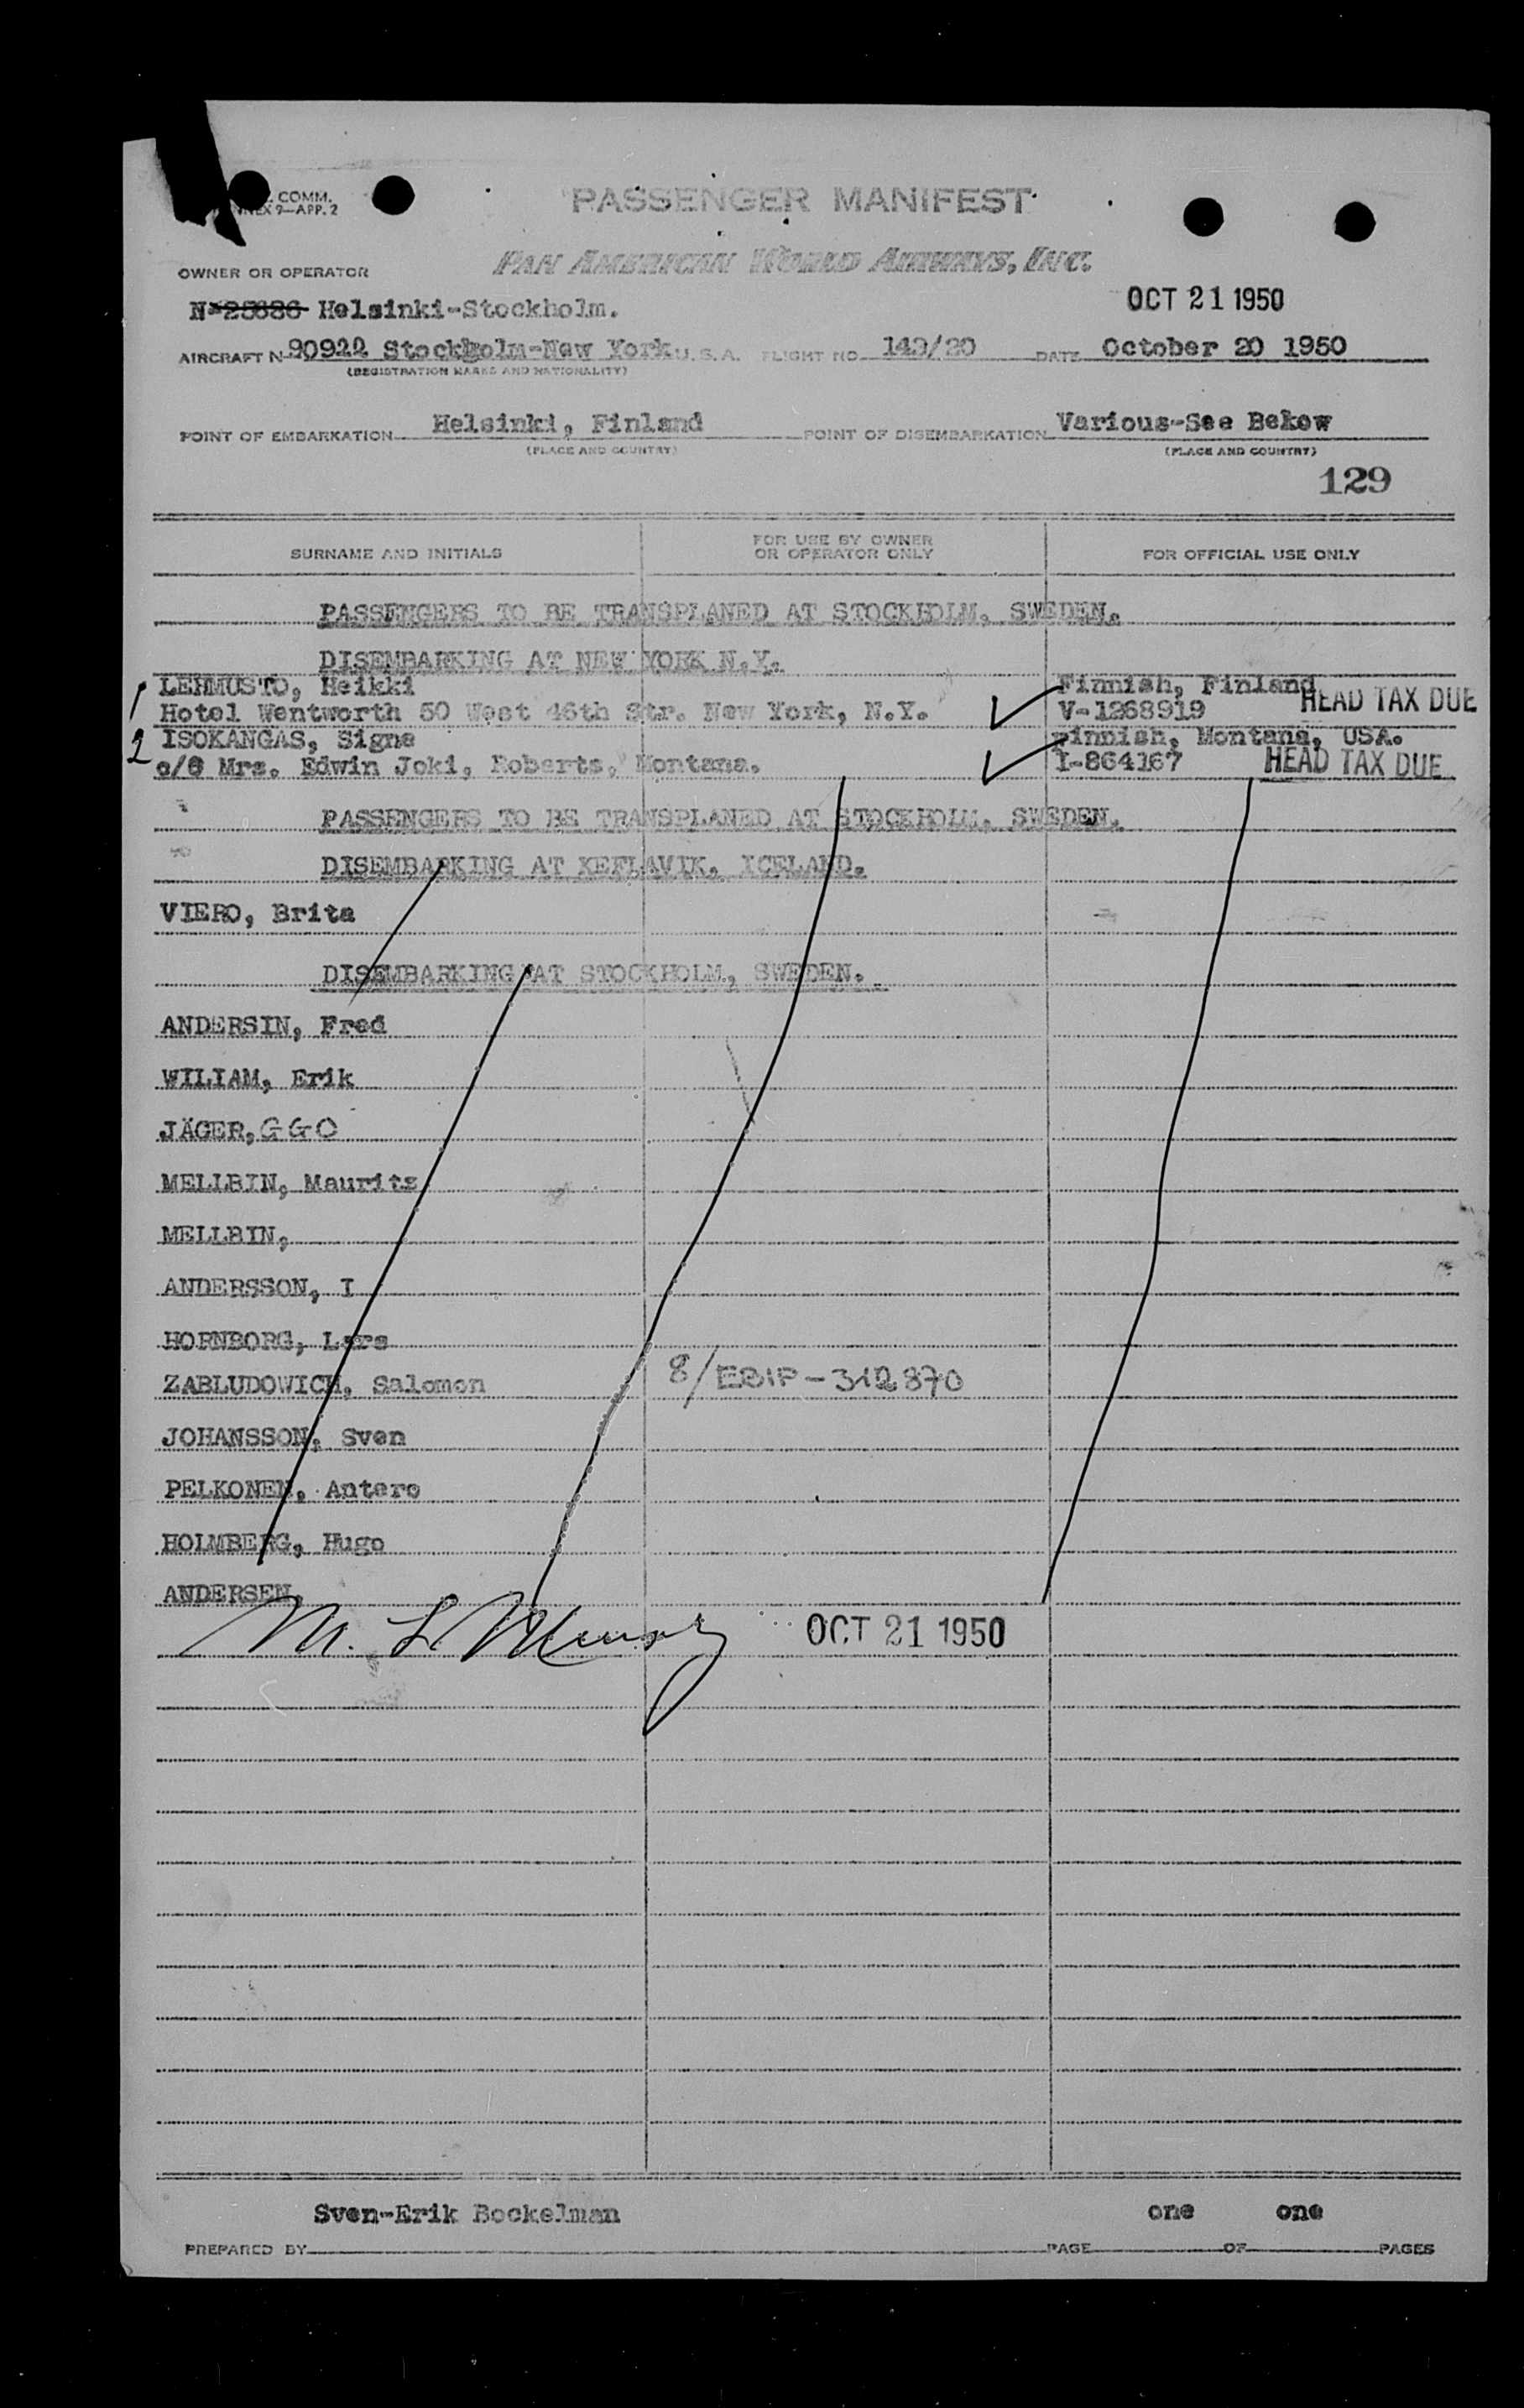 COMM.
9—APP. 2
PASSENGER MANIFEST
PAN AMERICAN WORLD AIRWAYS, INC.
OWNER OR OPERATOR
Helsinki-Stockholm.
OCT 21 1950
AIRCRAFT N 90922 Stockholm-New York U. S. A. FLIGHT NO. 149/20 DATE October 20 1950
(REGISTRATION MARKS AND NATIONALITY)
POINT OF EMBARKATION Helsinki, Finland POINT OF DISEMBARKATION Various-See Bekow
(PLACE AND COUNTRY) (PLACE AND COUNTRY)
129
SURNAME AND INITIALS FOR USE BY OWNER OR OPERATOR ONLY FOR OFFICIAL USE ONLY
PASSENGERS TO BE TRANSPLANED AT STOCKHOLM, SWEDEN.
DISEMBARKING AT NEW YORK N.Y.
1 LEHMUSTO, Heikki Finnish, Finland
Hotel Wentworth 50 West 46th Str. New York, N.Y. V-1268919 HEAD TAX DUE
2 ISOKANGAS, Signe Finnish, Montana, USA.
c/o Mrs. Edwin Joki, Roberts, Montana. I-864167 HEAD TAX DUE
PASSENGERS TO BE TRANSPLANED AT STOCKHOLM, SWEDEN.
DISEMBARKING AT KEFLAVIK, ICELAND.
VIERO, Brita
DISEMBARKING AT STOCKHOLM, SWEDEN.
ANDERSIN, Fred
WILIAM, Erik
JÄGER, G G O
MELLBIN, Maurits
MELLBIN,
ANDERSSON, I
HORNBORG, Lars
ZABLUDOWICH, Salomon 8/ -312870
JOHANSSON, Sven
PELKONEN, Antero
HOLMBERG, Hugo
ANDERSEN,
M. L. OCT 21 1950
Sven-Erik Bockelman one one
PREPARED BY PAGE OF PAGES